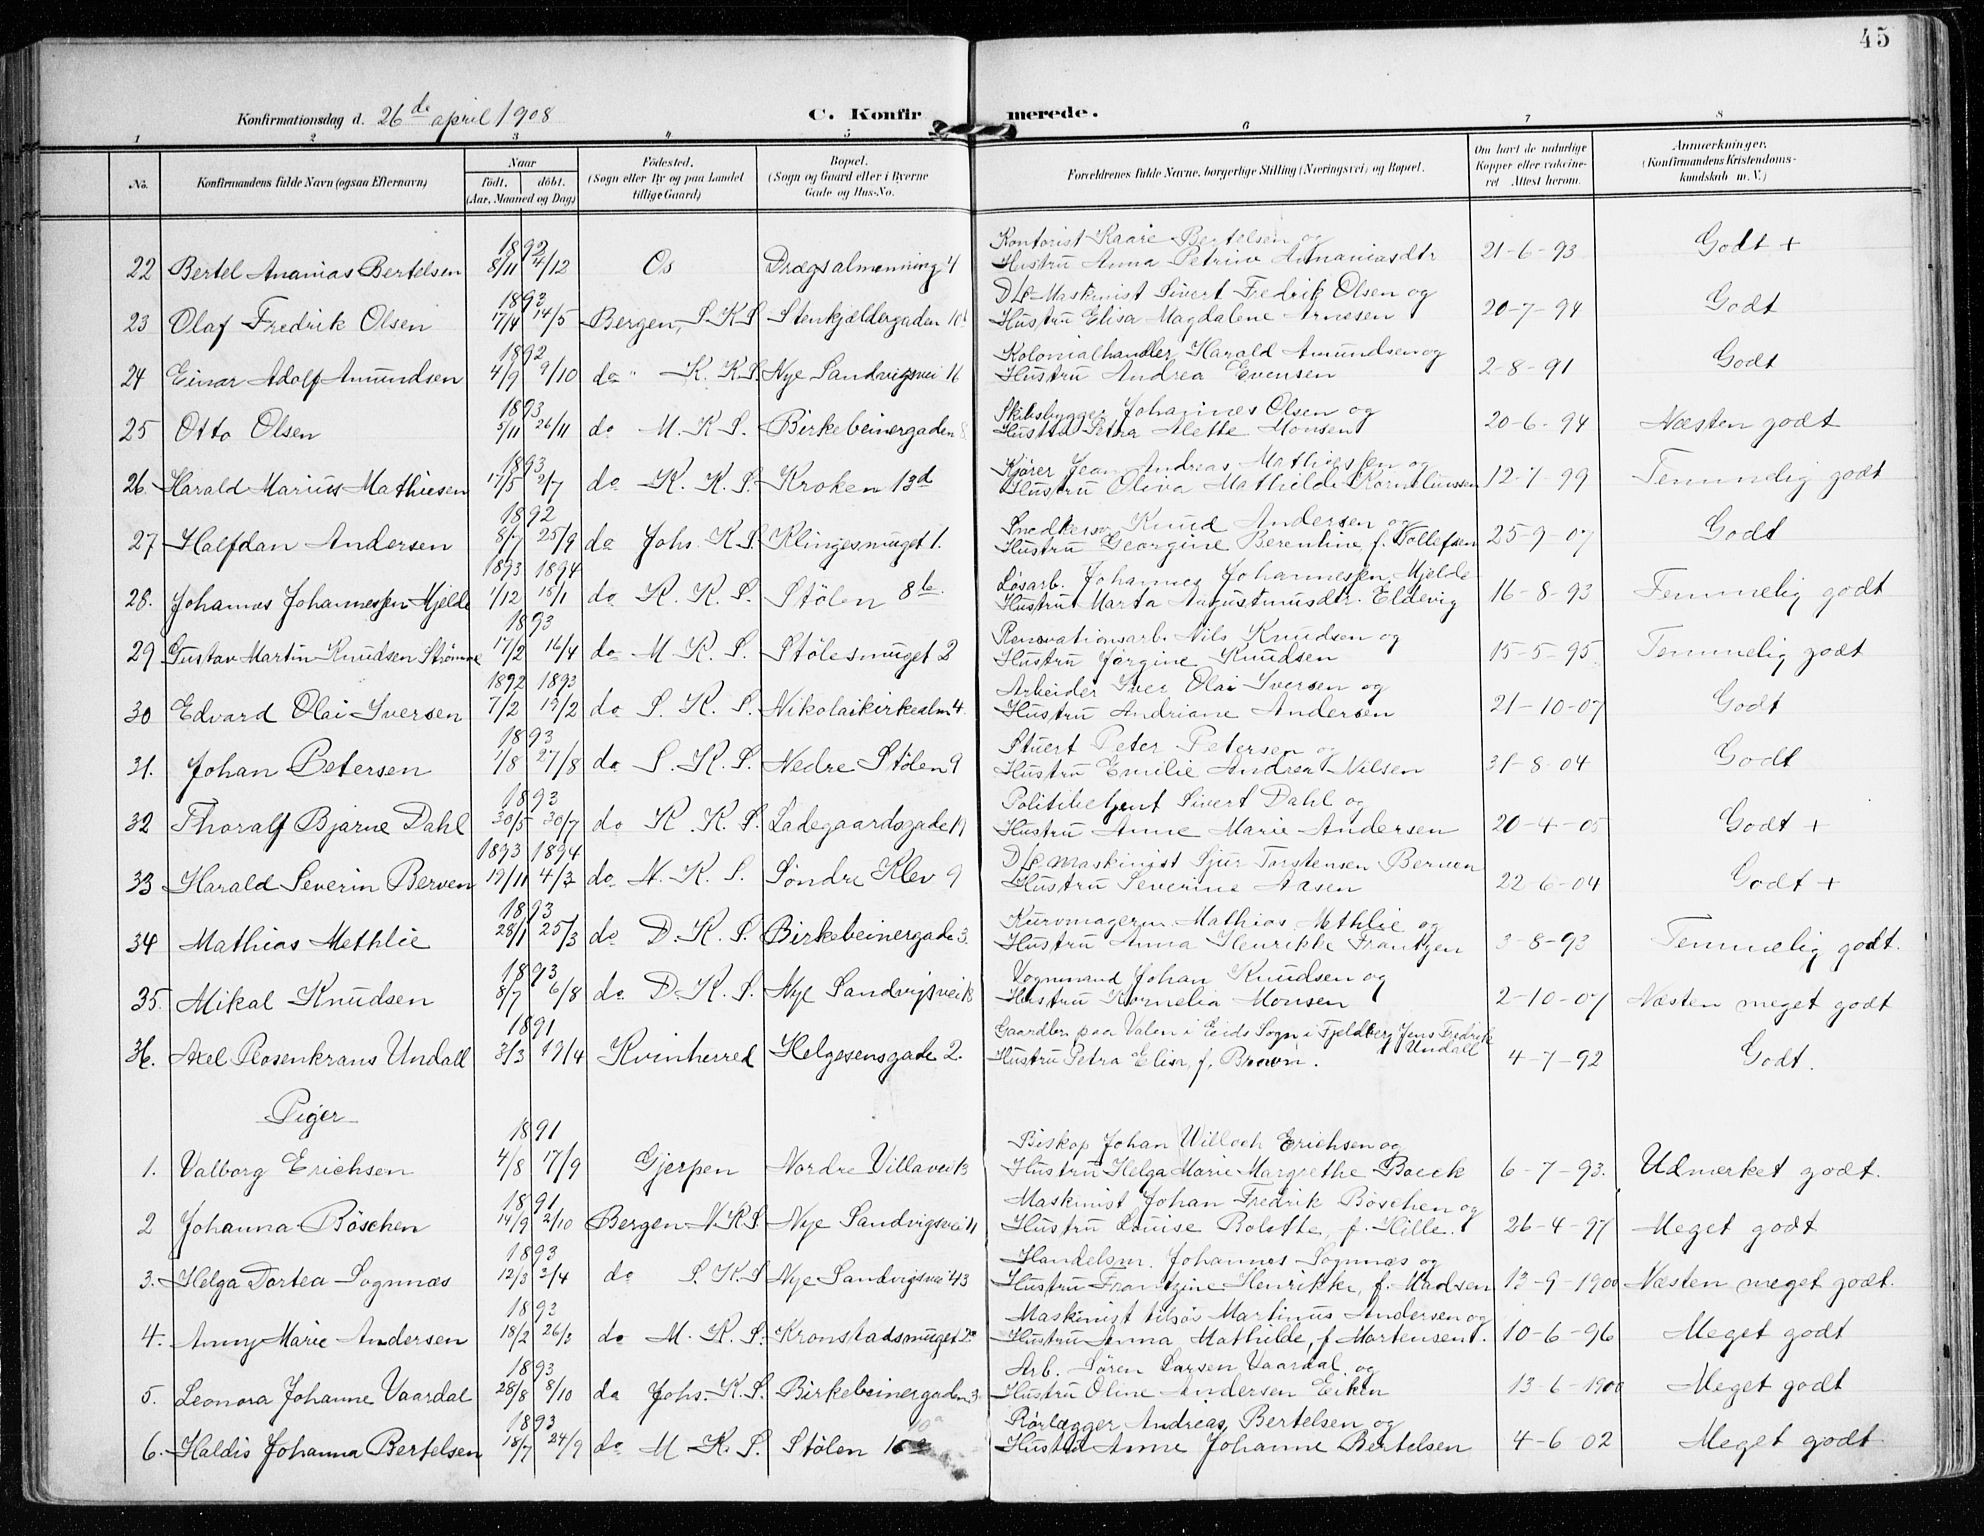 45
Konfirmationsdag d. 26de april 1908 C. Konfirmerede.
1 2 3 4 5 6 7 8
No. Konfirmandens fulde Navn (ogsaa Efternavn) Naar født. døbt. (Aar, Maaned og Dag) Fødested. (Sogn eller By og paa Landet tillige Gaard) Bopæl. (Sogn og Gaard eller i Byerne Gade og Hus-No. Forældrenes fulde Navne, borgerlige Stilling (Næringsvei) og Bopæl. Om havt de naturlige Kopper eller vakcineret. Attest herom. Anmærkninger. (Konfirmandens Kristendomskundskab m. V.)
1892 Kontorist Kaare Bertelsen og
22 Bertel Ananias Bertelsen 8/11 4/12 Os Drægsalmenning 4 Hustru Anna Petrine Ananiasdtr 21-6-93 Godt +
1893 Maskinist Sivert Fedrik Olsen og
23 Olaf Fredrik Olsen 17/4 14/5 Bergen, S.K.S Stenkjældergaden Hustru Elisa Magdalene Arnesen 20-7-94 Godt
1892 Kolonialhandler Harald Amundsen og
24 Einar Adolf Amundsen 4/9 9/10 do " K.K.S. Nye Sandvigsvei 16 Hustru Andrea Evensen 2-8-91 Godt
1893 Skibsbygger Johannes Olsen og
25 Otto Olsen 5/11 26/11 do M.K.S. Birkebeinergaden 8 Hustru Petra Alette Monsen 20-6-94 Næsten godt
1893 Kjører Jean Andreas Mathiessen og
26. Harald Marius Mathiesen 17/5 2/7 do K.K.S. Kroken 13d Hustru Oliva Mathilde Korneliussen 12-7-99 Temmelig godt
1892 Snedkersv. Knud Andersen og
27 Halfdan Andersen 8/7 25/9 do Johs. K.S. Klingesmuget 1. Hustru Georgine Berentine f. Tollefsen 25-9-07 Godt
1893 1894 Løsarb. Johannes Johannessen Mjelde
28. Johannes Johannessen Mjelde 1/12 15/1 do K.K.S. Stølen 8b. Hustru Marta Augustinusdtr. Eldevig 16-8-93 Temmelig godt
1893 Renovationsarb. Nils Knudsen og
29 Gustav Martin Knudsen Strømme 17/2 16/4 do M.K.S. Stølesmuget 2 Hustru Jørgine Knudsen 15-5-95 Temmelig godt
1892 1893 Arbeider Iver Olai Iversen og
30 Edvard Olai Iversen 7/2 19/2 do S.K.S. Nikolaikirkealm 4. Hustru Andriane Andersen 21-10-07 Godt
1893 Stuert Peter Petersen og
31. Johan Petersen 1/8 27/8 do S.K.S. Nedre Stølen 9 Hustru Emilie Andrea Nilsen 31-8-04 Godt
1893 Politibetjent Sivert Dahl og
32 Thoralf Bjarne Dahl 30/5 30/7 do K.K.S. Ladegaardsgade Hustru Anne Marie Andersen 20-4-05 Godt +
1893 1894 Maskinist Sjur Torstensen Berven
33 Harald Severin Berven 19/11 4/3 do N.K.S. Søndre Klev 9 Hustru Severine Aasen 22-6-04 Godt +
1893 Kurvmagerm. Mathias Methlie og
34 Mathias Methlie 28/1 25/3 do D.K.S. Birkebeinergade 3. Hustru Anna Henrikke Frantzen 3-8-93 Temmelig godt.
1893 Vognmand Johan Knudsen og
35. Mikal Knudsen 8/7 6/8 do D.K.S. Nye Sandvigsvei Hustru Kornelia Monsen 2-10-07 Næsten meget godt
1891 Gaardbr. paa Valen i Eids Sogn i Fjeldberg Jens Fredrik Undall
36. Axel Rosenkrans Undall 3/3 19/4 Kvinherred Helgesensgade 2. Hustru Petra Elisa, f. Broun. 4-7-92 Godt.
Piger
1891 Biskop Johan Willoch Erichsen og
1. Valborg Erichsen 4/8 17/9 Gjerpen Nordre Villavei 13 Hustru Helga Marie Margrethe Boeck 6-7-93. Udmerket godt.
1891 Maskinist Johan Fredrik Bøschen og
2 Johanna Bøschen 14/9 2/10 Bergen N.K.S Nye Sandvigsvei Hustru Louise Bolette, f. Hille. 26-4-97 Meget godt
1893 Handelsm. Johannes Sognnæs og
3. Helga Dortea Sognnæs 12/3 3/4 do S.K.S Nye Sandvigsvei 43 Hustru Frantzine Henrikke, f. Madsen 13-9-1900 Næsten meget godt.
1893 Maskinist tilsøs Martinus Andersen og
4. Anny Marie Andersen 18/2 26/3 do M.K.S. Kronstadsmuget Hustru Anna Mathilde, f. Mortensen. 10-6-96 Meget godt
1893 Arb. Søren Larsen Vaardal og
5. Leonora Johanne Vaardal 28/8 8/10 do Johs. K.S. Birkebeinergaden 3 Hustru Oline Andersen Eiken 13-6-1900 Meget godt
1893 Rørlægger Andreas Bertelsen og
6. Haldis Johanna Bertelsen 18/7 24/9 do M.K.S. Stølen Hustru Anne Johanne Bertelsen 4-6-02 Meget godt